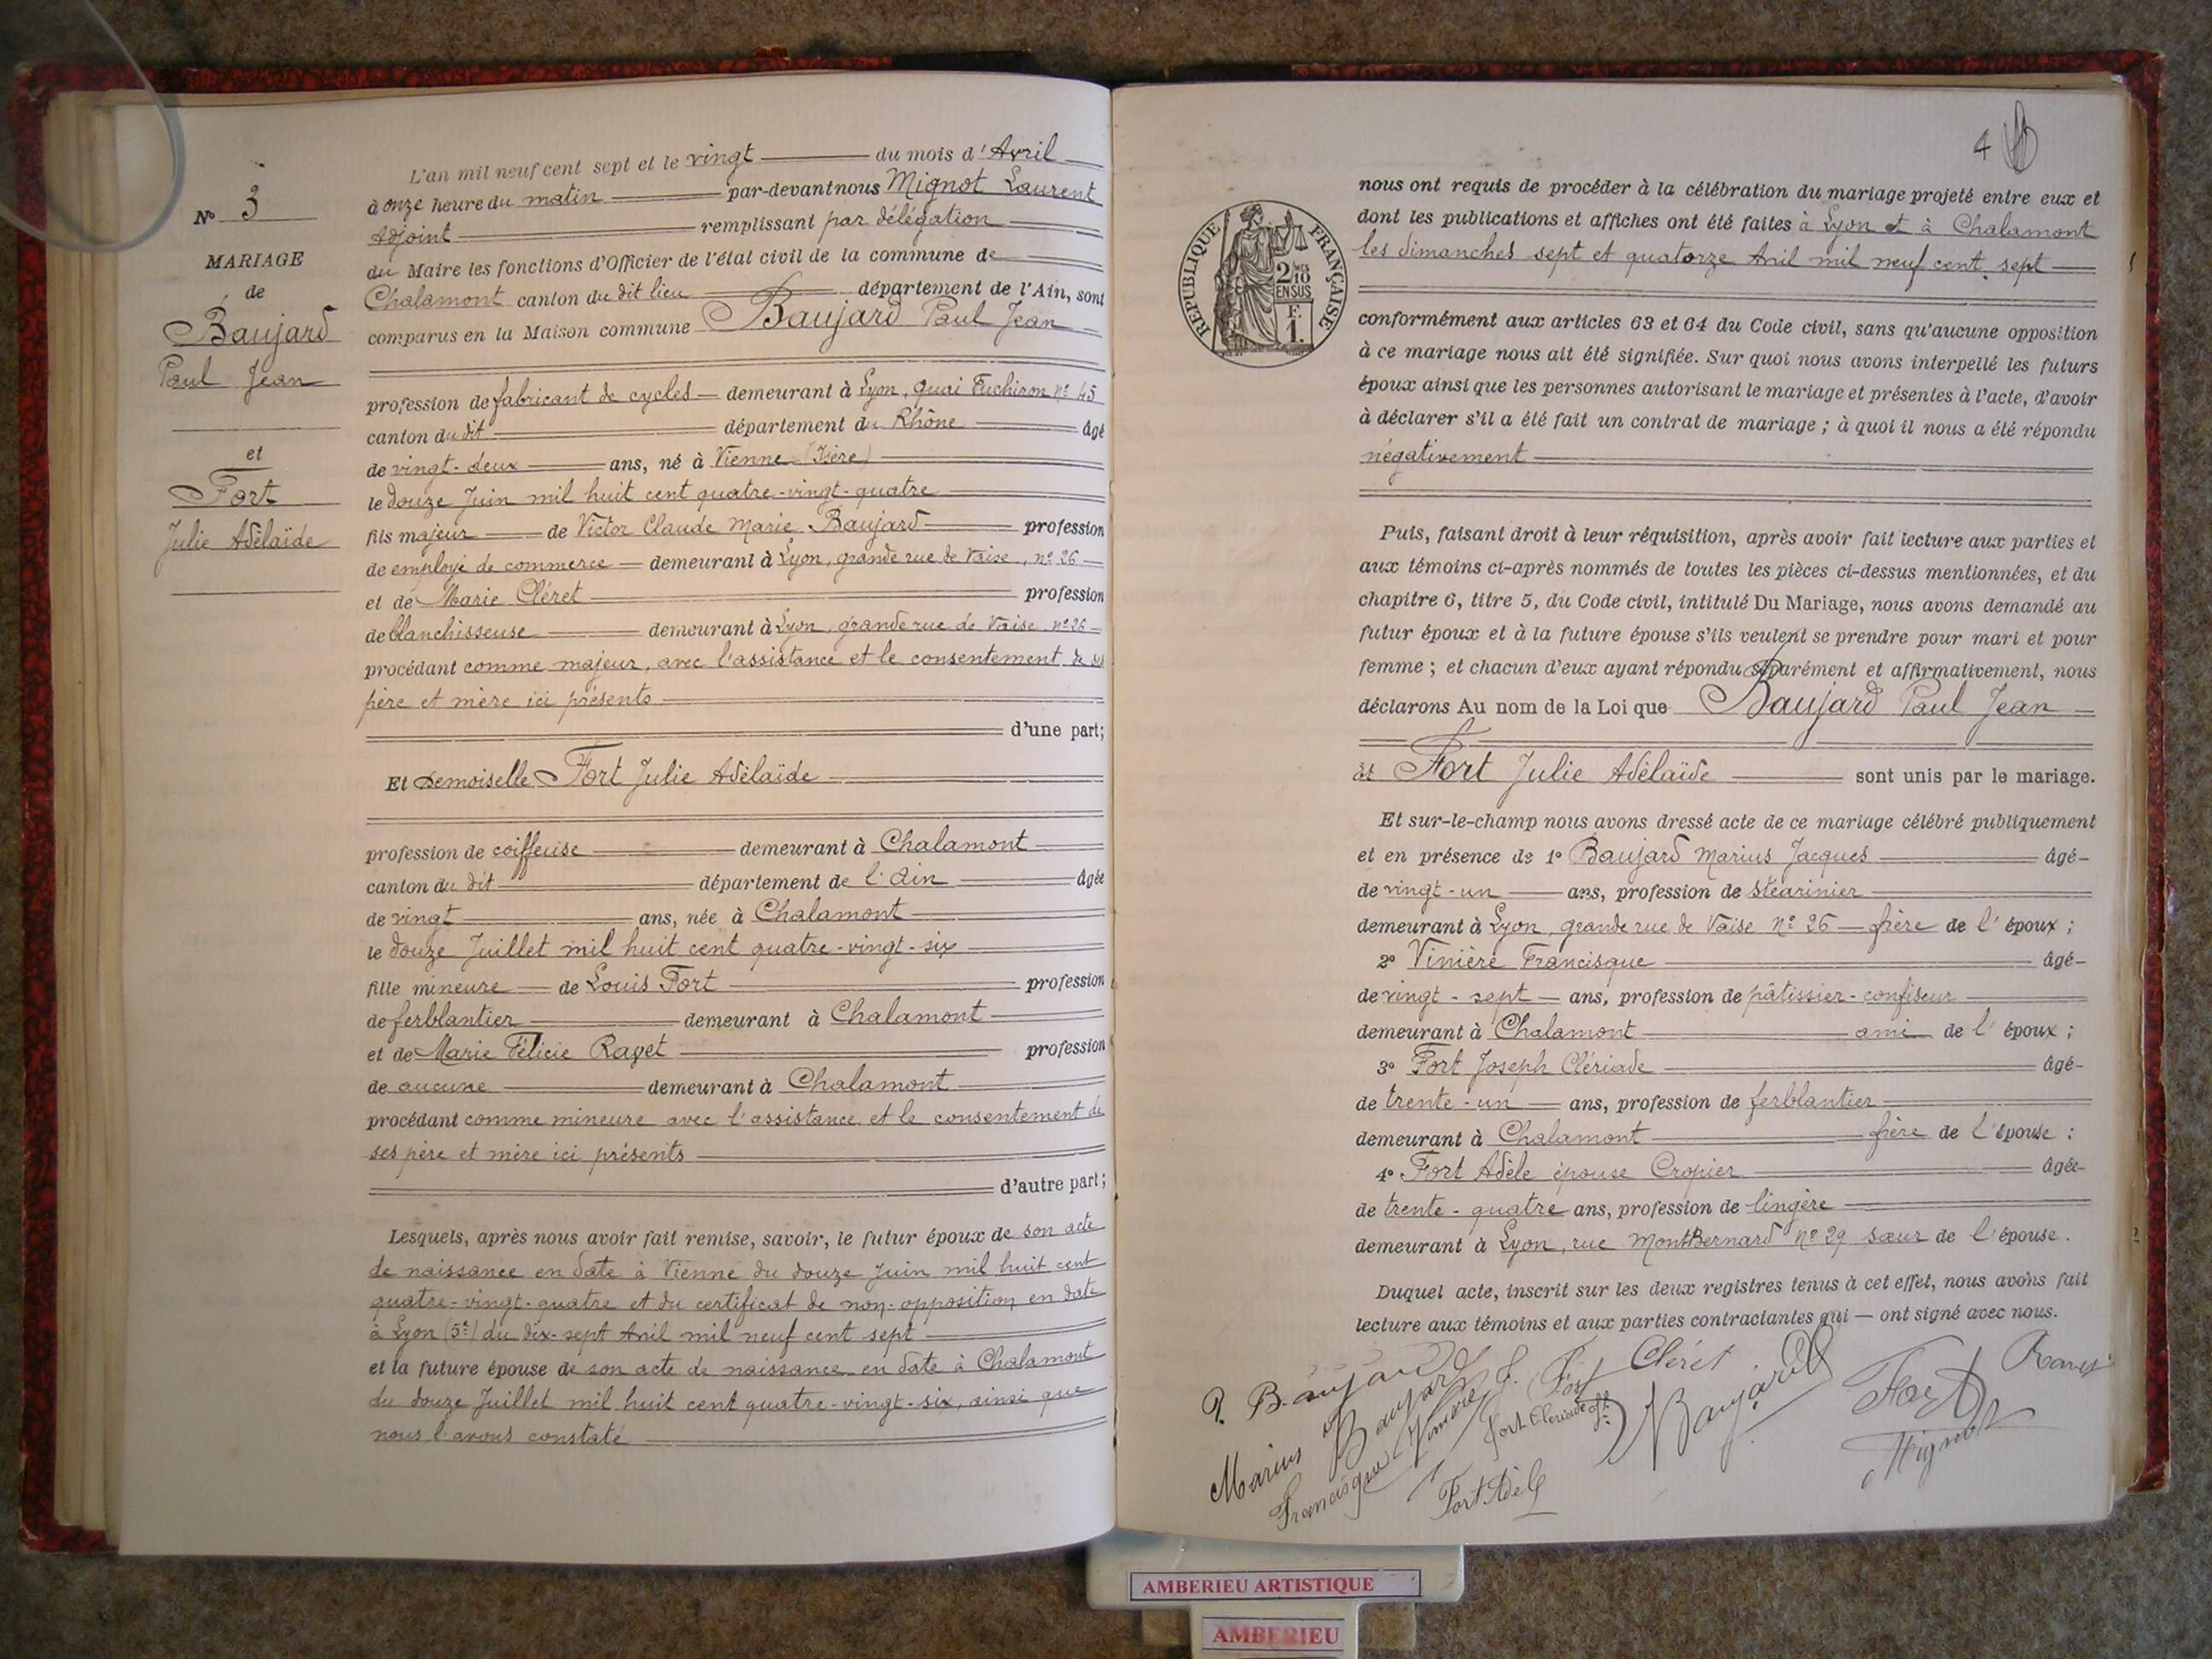 N° 3
MARIAGE
de
Baujard
Paul Jean
et
Fort
Julie Adélaïde
L'an mil neuf cent sept et le vingt du mois d'Avril
à onze heure du matin par-devant nous Mignot Laurent
Adjoint remplissant par délégation
du Maire les fonctions d'Officier de l'état civil de la commune de
Chalamont canton du dit lieu département de l'Ain, sont
comparus en la Maison commune Baujard Paul Jean
profession de fabricant de cycles demeurant à Lyon, quai Fuchiron n° 45
canton du dit département du Rhône âgé
de vingt-deux ans, né à Vienne (Isère)
le douze Juin mil huit cent quatre-vingt-quatre
fils majeur de Victor Claude Marie Baujard profession
de employé de commerce demeurant à Lyon, grande rue de Vaise, n° 26
et de Marie Cléret profession
de blanchisseuse demeurant à Lyon, grande rue de Vaise n° 26
procédant comme majeur, avec l'assistance et le consentement de ses
père et mère ici présents
d'une part;
Et Demoiselle Fort Julie Adélaïde
profession de coiffeuse demeurant à Chalamont
canton du dit département de l'Ain âgée
de vingt ans, née à Chalamont
le douze Juillet mil huit cent quatre-vingt-six
fille mineure de Louis Fort profession
de ferblantier demeurant à Chalamont
et de Marie Félicie Ravet profession
de aucune demeurant à Chalamont
procédant comme mineure avec l'assistance et le consentement de
ses père et mère ici présents
d'autre part;
Lesquels, après nous avoir fait remise, savoir, le futur époux de son acte
de naissance en date à Vienne du douze Juin mil huit cent
quatre-vingt-quatre et du certificat de non-opposition en date
à Lyon (5e) du dix-sept Avril mil neuf cent sept
et la future épouse de son acte de naissance en date à Chalamont
du douze Juillet mil huit cent quatre-vingt-six, ainsi que
nous l'avons constaté
4
RÉPUBLIQUE FRANÇAISE
2/10 MES
EN SUS
F.
1.
nous ont requis de procéder à la célébration du mariage projeté entre eux et
dont les publications et affiches ont été faites à Lyon et à Chalamont
les dimanches sept et quatorze Avril mil neuf cent sept
conformément aux articles 63 et 64 du Code civil, sans qu'aucune opposition
à ce mariage nous ait été signifiée. Sur quoi nous avons interpellé les futurs
époux ainsi que les personnes autorisant le mariage et présentes à l'acte, d'avoir
à déclarer s'il a été fait un contrat de mariage ; à quoi il nous a été répondu
négativement
Puis, faisant droit à leur réquisition, après avoir fait lecture aux parties et
aux témoins ci-après nommés de toutes les pièces ci-dessus mentionnées, et du
chapitre 6, titre 5, du Code civil, intitulé Du Mariage, nous avons demandé au
futur époux et à la future épouse s'ils veulent se prendre pour mari et pour
femme ; et chacun d'eux ayant répondu séparément et affirmativement, nous
déclarons Au nom de la Loi que Baujard Paul Jean
et Fort Julie Adélaïde sont unis par le mariage.
Et sur-le-champ nous avons dressé acte de ce mariage célébré publiquement
et en présence de 1° Baujard Marius Jacques âgé
de vingt-un ans, profession de stéarinier
demeurant à Lyon, grande rue de Vaise N° 26 frère de l'époux ;
2° Vinière Francisque âgé
de vingt-sept ans, profession de pâtissier-confiseur
demeurant à Chalamont ami de l'époux ;
3° Fort Joseph Clériade âgé
de trente-un ans, profession de ferblantier
demeurant à Chalamont frère de l'épouse ;
4° Fort Adèle épouse Cropier âgée
de trente-quatre ans, profession de lingère
demeurant à Lyon, rue MontBernard N° 29 sœur de l'épouse.
Duquel acte, inscrit sur les deux registres tenus à cet effet, nous avons fait
lecture aux témoins et aux parties contractantes qui — ont signé avec nous.
P. Baujard J. Fort Cléret Ravet
Marius Baujard Fort Clériade Baujard Fort
Francisque Vinière Fort Adèle Mignot
AMBERIEU ARTISTIQUE
AMBERIEU